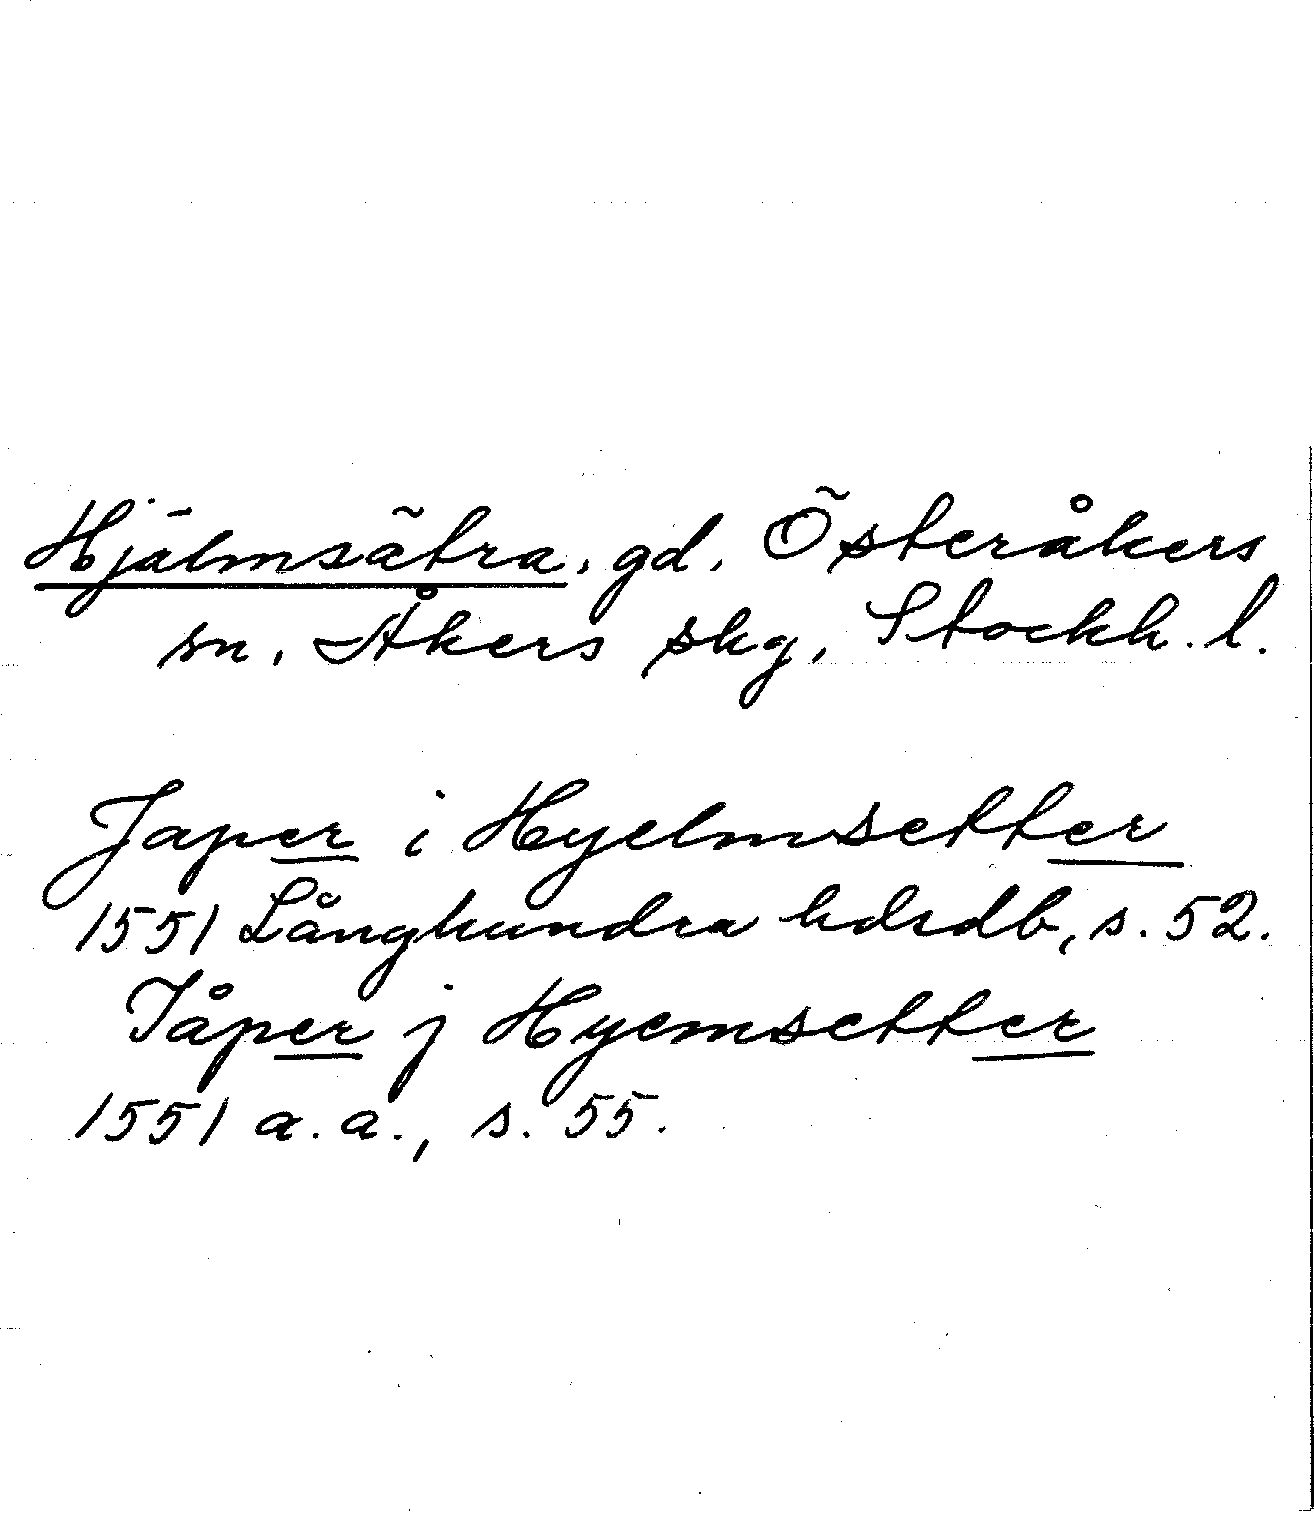 Hjälmsätra, gd, Österåkers
sn, Åkers skg, Stockh. l.
Japer i Hyelmsetter
1551 Långhundra hdrdb, s. 52.
Jåper j Hyemsetter
1551 a.a., s. 55.